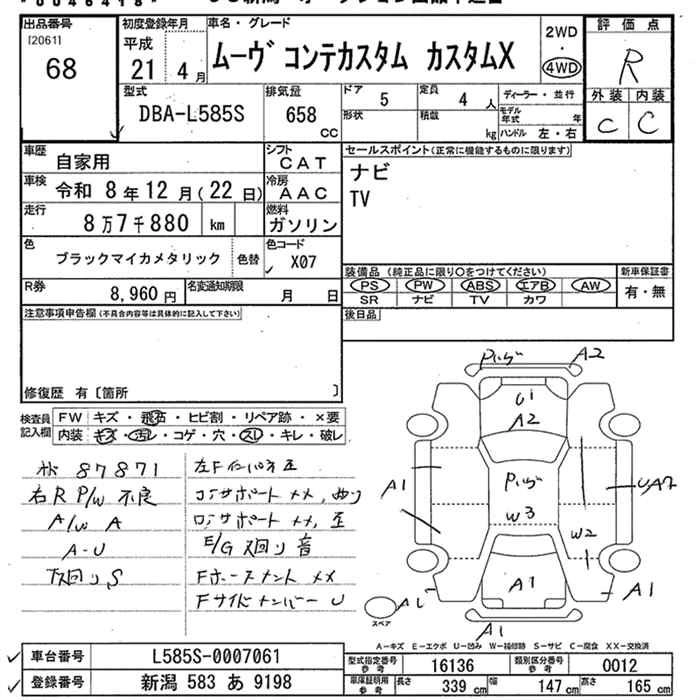 出品番号
I20611
68
初度登録年月
平成
21 4月
車名・グレード
ムーヴ コンテカスタム カスタムX
2WD
・
4WD
評価点
R
外装 内装
C C
型式
DBA-L585S
排気量
658 cc
ドア 5
定員 4 人
ディーラー・並行
形状
積載 kg
モデル年式 年
ハンドル 左・右
車歴 自家用
シフト CAT
車検 令和 8年12月(22日)
冷房 AAC
走行 8万7千880 km
燃料 ガソリン
色 ブラックマイカメタリック 色替
色コード X07
R券 8,960円
名変通知期限 月 日
セールスポイント(正常に機能するものに限ります)
ナビ
TV
装備品 (純正品に限り○をつけてください)
PS PW ABS エアB AW
SR ナビ TV カワ
新車保証書
有・無
後日品
注意事項申告欄(不具合内容等は具体的に記入して下さい)
修復歴 有〔箇所 〕
検査員記入欄
FW キズ・飛石・ヒビ割・リペア跡・×要
内装 キズ・汚レ・コゲ・穴・スレ・キレ・破レ
87871
右R P/W 不良
A/W A
A-U
下廻りS
コアサポート メメ,
ロアサポート メメ,
E/G 廻り 音
Fサイドメンバー U
A2
U1
A2
A1
W3
W2
A1
A1
A1
スペア
A-キズ E-エクボ U-凹み W-補修跡 S-サビ C-腐食 XX-交換済
車台番号 L585S-0007061
登録番号 新潟 583 あ 9198
型式指定番号参考 16136
類別区分番号参考 0012
車庫証明用参考 長さ 339 cm 幅 147 cm 高さ 165 cm